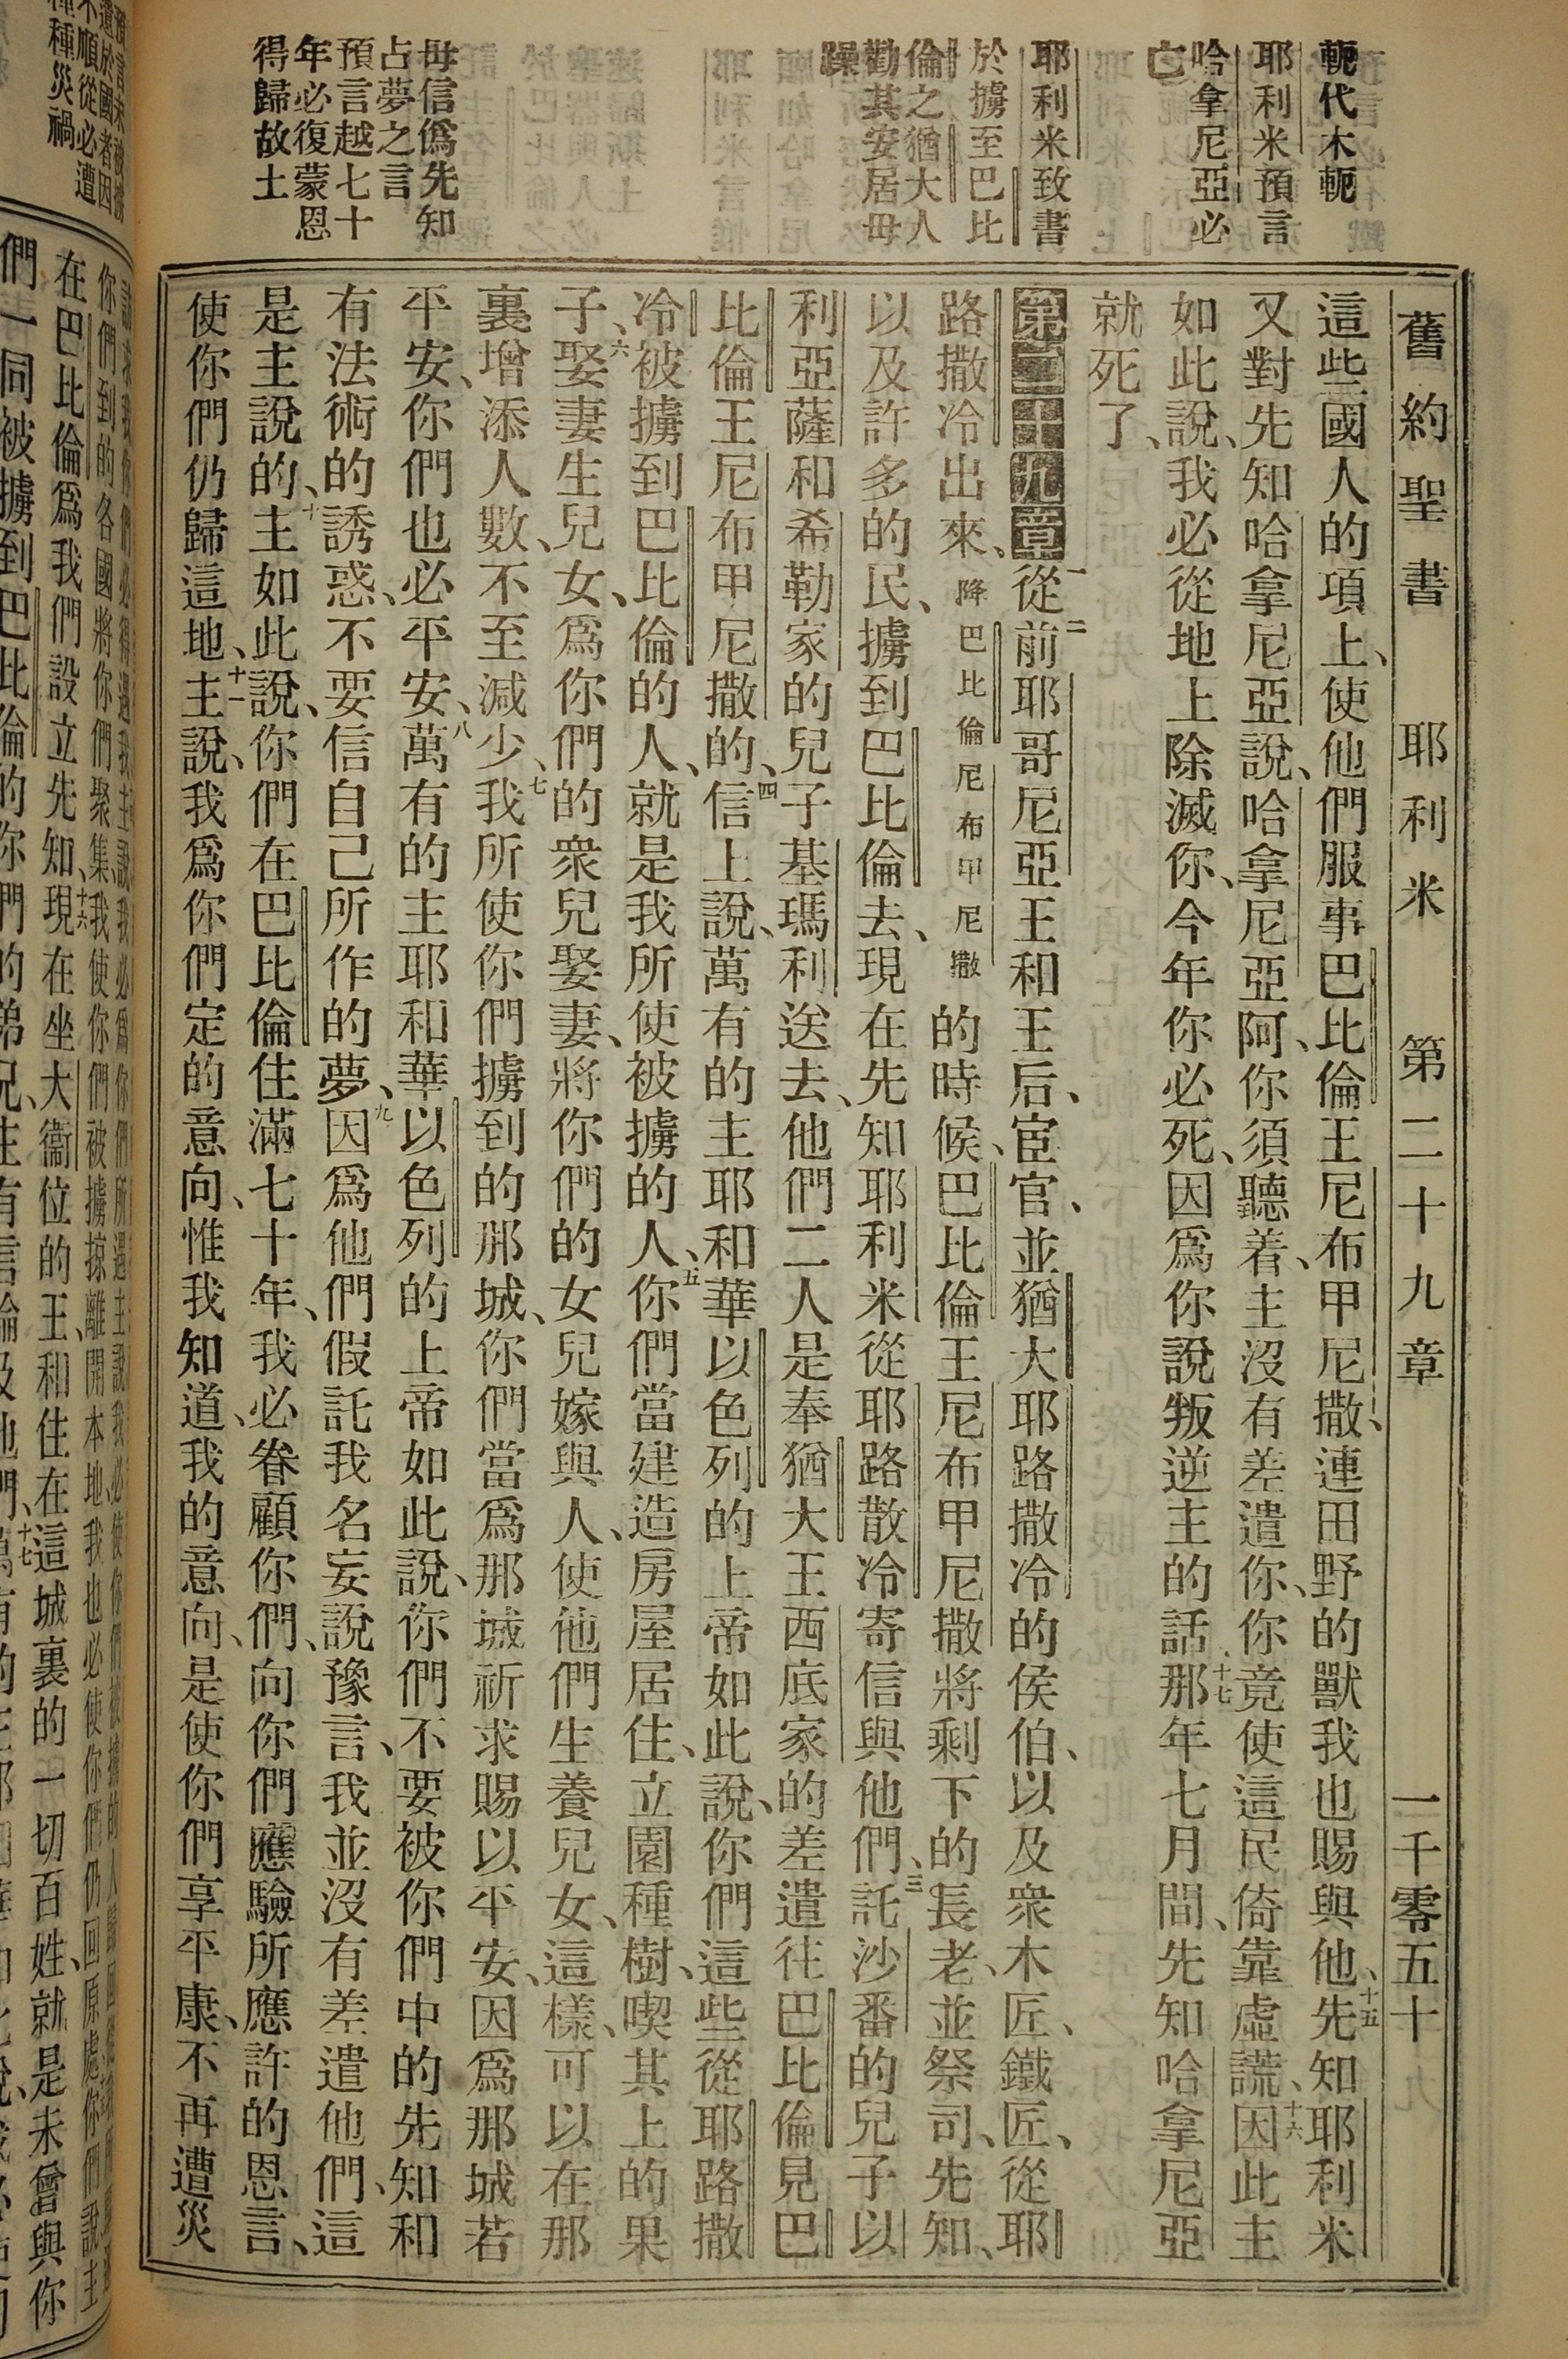 舊約聖書 耶利米 第二十九章 一千零五十
軛代木軛
耶利米預言
哈拿尼亞必
亡
耶利米致書
於擄至巴比
倫之猶大人
勸其安居毋
躁
毋信僞先知
占夢之言
預言越七十
年必復蒙恩
得歸故土
這些國人的項上、使他們服事巴比倫王尼布甲尼撒、連田野的獸我也賜與他、十五先知耶利米
又對先知哈拿尼亞說、哈拿尼亞阿、你須聽着、主沒有差遣你、你竟使這民倚靠虛謊、十六因此主
如此說、我必從地上除滅你、今年你必死、因爲你說叛逆主的話、十七那年七月間、先知哈拿尼亞
就死了、
第二十九章一從二前耶哥尼亞王和王后、宦官、並猶大耶路撒冷的侯伯、以及衆木匠、鐵匠、從耶
路撒冷出來、降巴比倫尼布甲尼撒的時候、巴比倫王尼布甲尼撒將剩下的長老、並祭司、先知、
以及許多的民、擄到巴比倫去、現在先知耶利米從耶路撒冷寄信與他們、三託沙番的兒子以
利亞薩和希勒家的兒子基瑪利送去、他們二人是奉猶大王西底家的差遣往巴比倫見巴
比倫王尼布甲尼撒的、四信上說、萬有的主耶和華以色列的上帝如此說、你們這些從耶路撒
冷被擄到巴比倫的人、就是我所使被擄的人、五你們當建造房屋居住、立園種樹、喫其上的果
子、六娶妻生兒女、爲你們的衆兒娶妻、將你們的女兒嫁與人、使他們生養兒女、這樣、可以在那
裏增添人數、不至減少、七我所使你們擄到的那城、你們當爲那城祈求賜以平安、因爲那城若
平安、你們也必平安、八萬有的主耶和華以色列的上帝如此說、你們不要被你們中的先知和
有法術的誘惑、不要信自己所作的夢、九因爲他們假託我名妄說豫言、我並沒有差遣他們、這
是主說的、十主如此說、你們在巴比倫住滿七十年、我必眷顧你們、向你們應驗所應許的恩言、
使你們仍歸這地、十一主說、我爲你們定的意向、惟我知道、我的意向、是使你們享平康、不再遭災
你們到的各國將你們聚集、我使你們被擄掠離開本地、我也必使你們仍回原處、你們說主
在巴比倫爲我們設立先知、十六現在坐大衞位的王、和住在這城裏的一切百姓、就是未曾與你
們一同被擄到巴比倫的你們的弟兄、